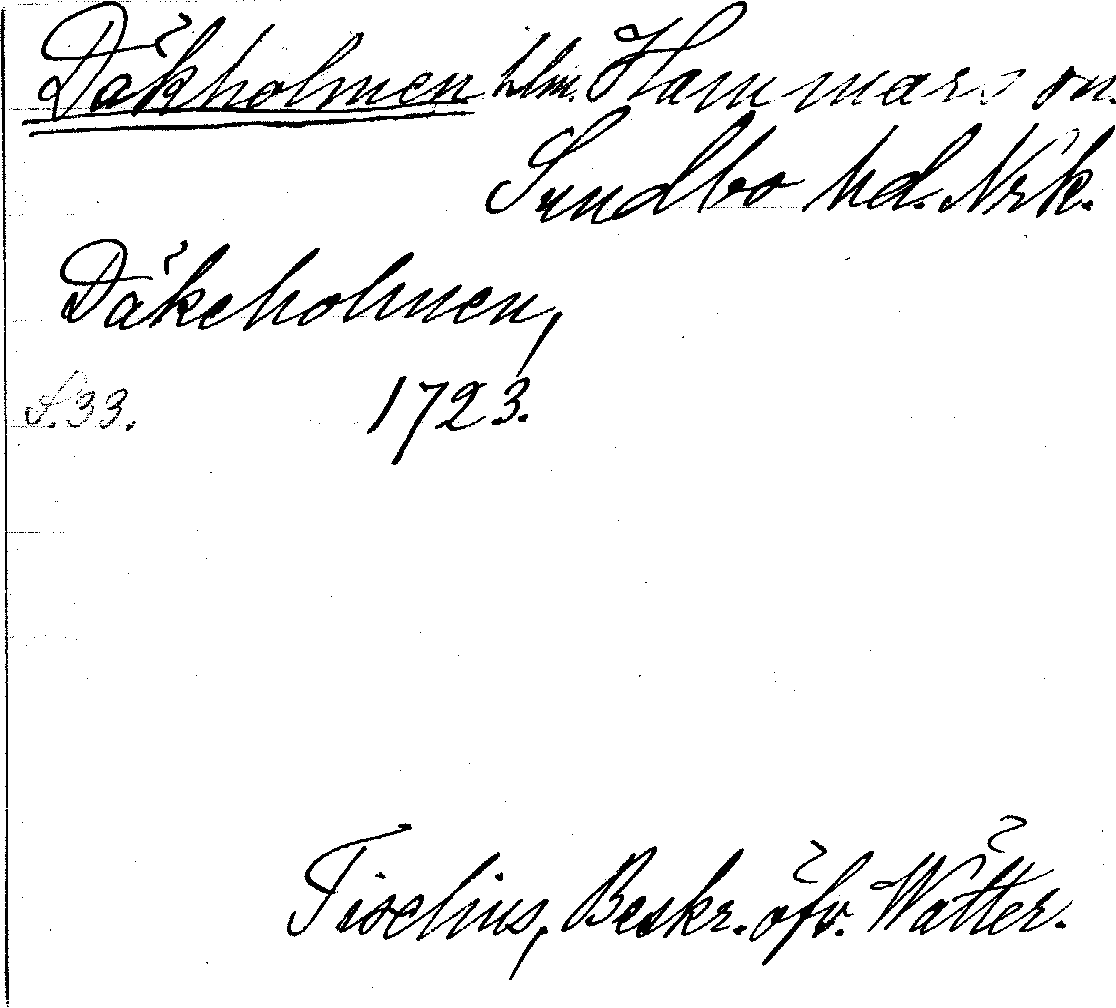 Däkholmen hlm. Hammars sn.
Sundbo hd. Nrk.
Däkeholmen,
S. 33. 1723.
Tiselius, Beskr. öfv. Wätter.